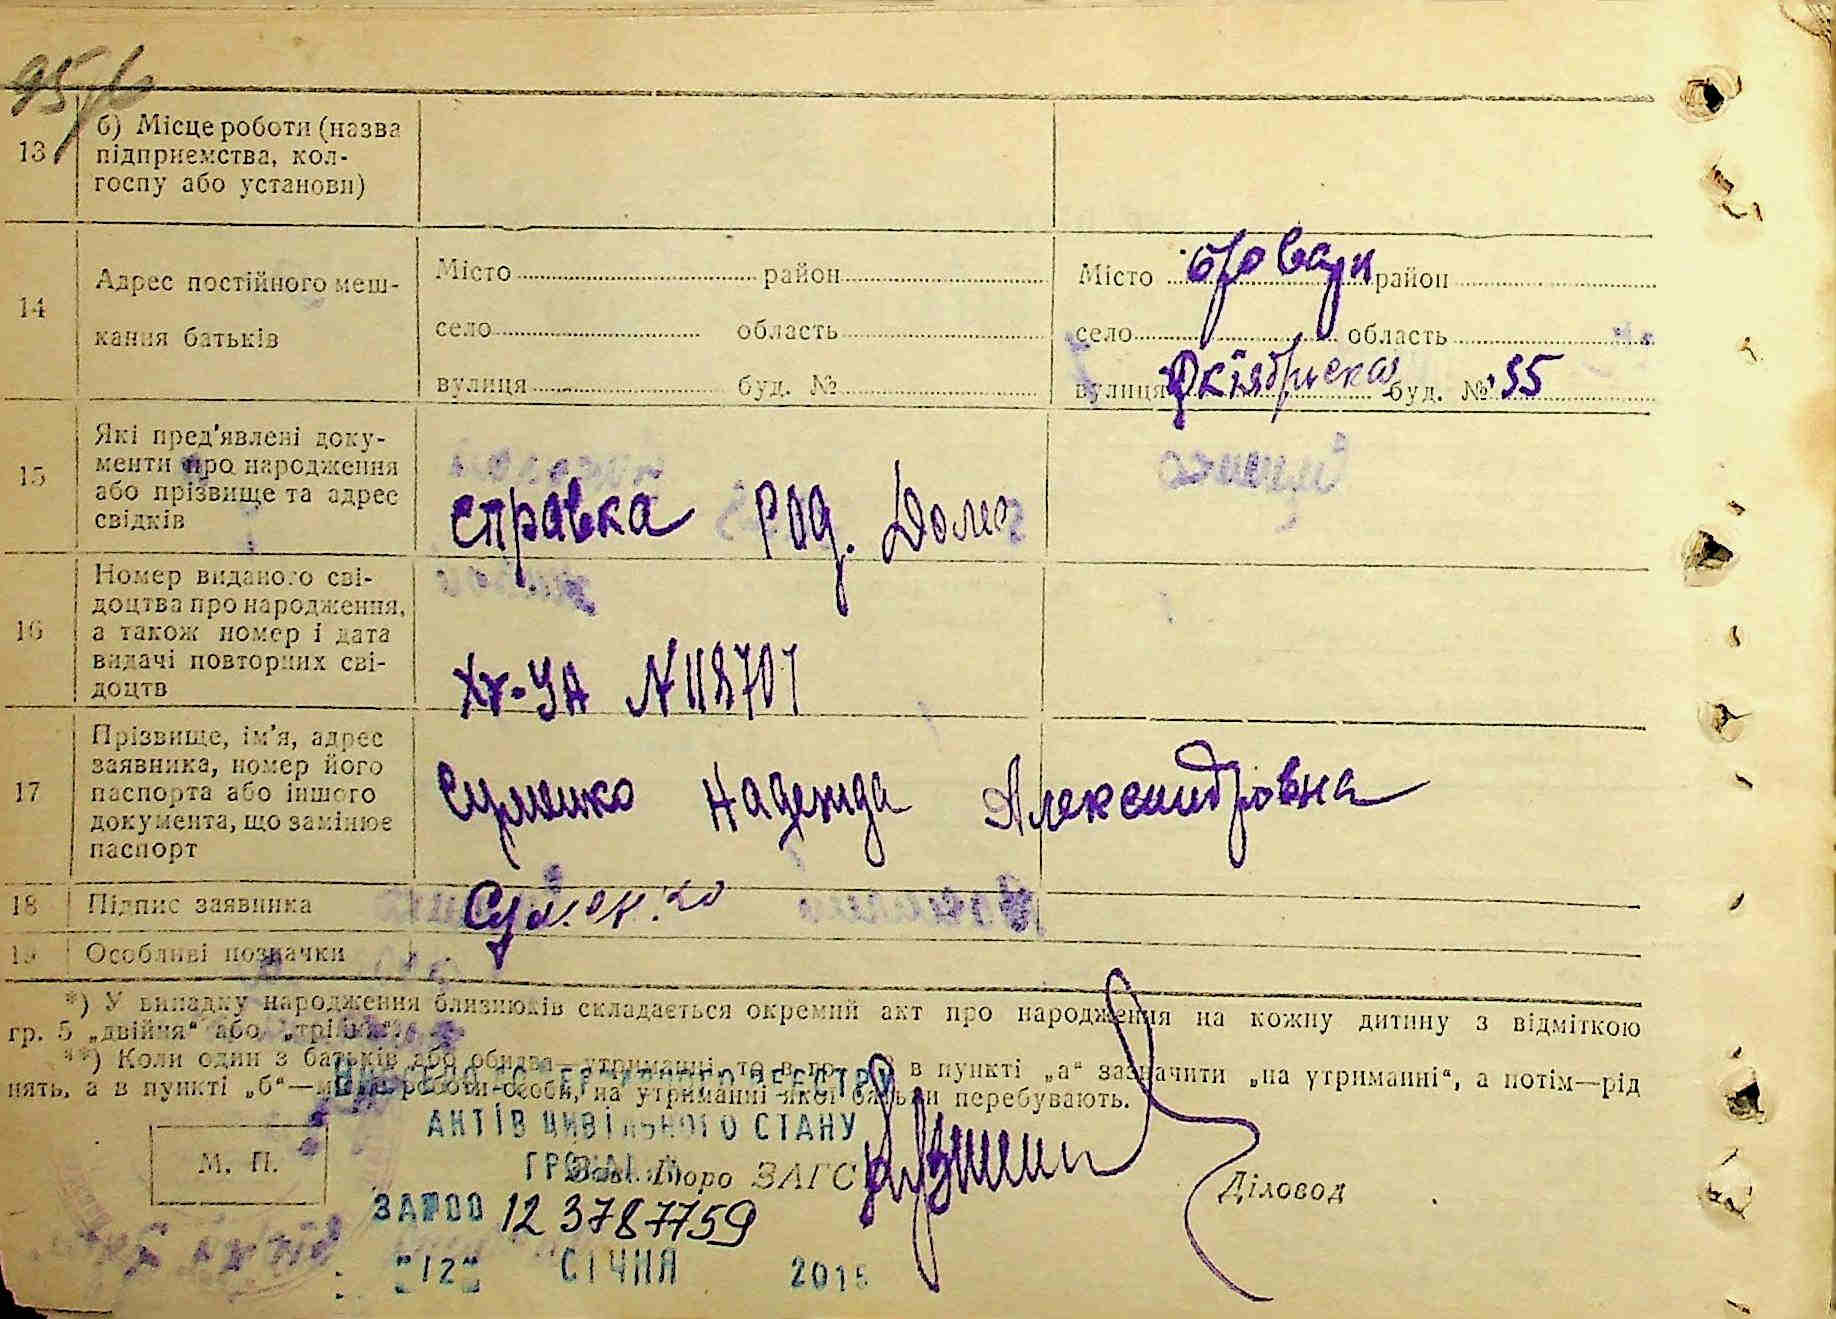 95/6
13 б) Місце роботи (назва
підприємства, кол-
госпу або установи)
14 Адрес постійного меш-
кання батьків
Місто район
село область
вулиця буд. №
Місто Бровари район
село область
вулиця Октябрьская буд. № 35
15 Які пред'явлені доку-
менти про народження
або прізвище та адрес
свідків
справка род. Дома
16 Номер виданого сві-
доцтва про народження,
а також номер і дата
видачі повторних сві-
доцтв
УА N 118701
17 Прізвище, ім'я, адрес
заявника, номер його
паспорта або іншого
документа, що замінює
паспорт
Надежда Александровна
18 Підпис заявника
19 Особливі позначки
*) У випадку народження близнюків складається окремий акт про народження на кожну дитину з відміткою
гр. 5 „двійня“ або „трійня“.
**) Коли один з батьків або обидва—утриманні, то в гр. в пункті „а“ зазначити „на утриманні“, а потім—рід
нять, а в пункті „б“—місце роботи особи, на утриманні якої батьки перебувають.
АКТІВ ЦИВІЛЬНОГО СТАНУ
ГРОМАДЯН
М. П.
Бюро ЗАГС
Діловод
ЗА №00 123787759
"12" СІЧНЯ 2015